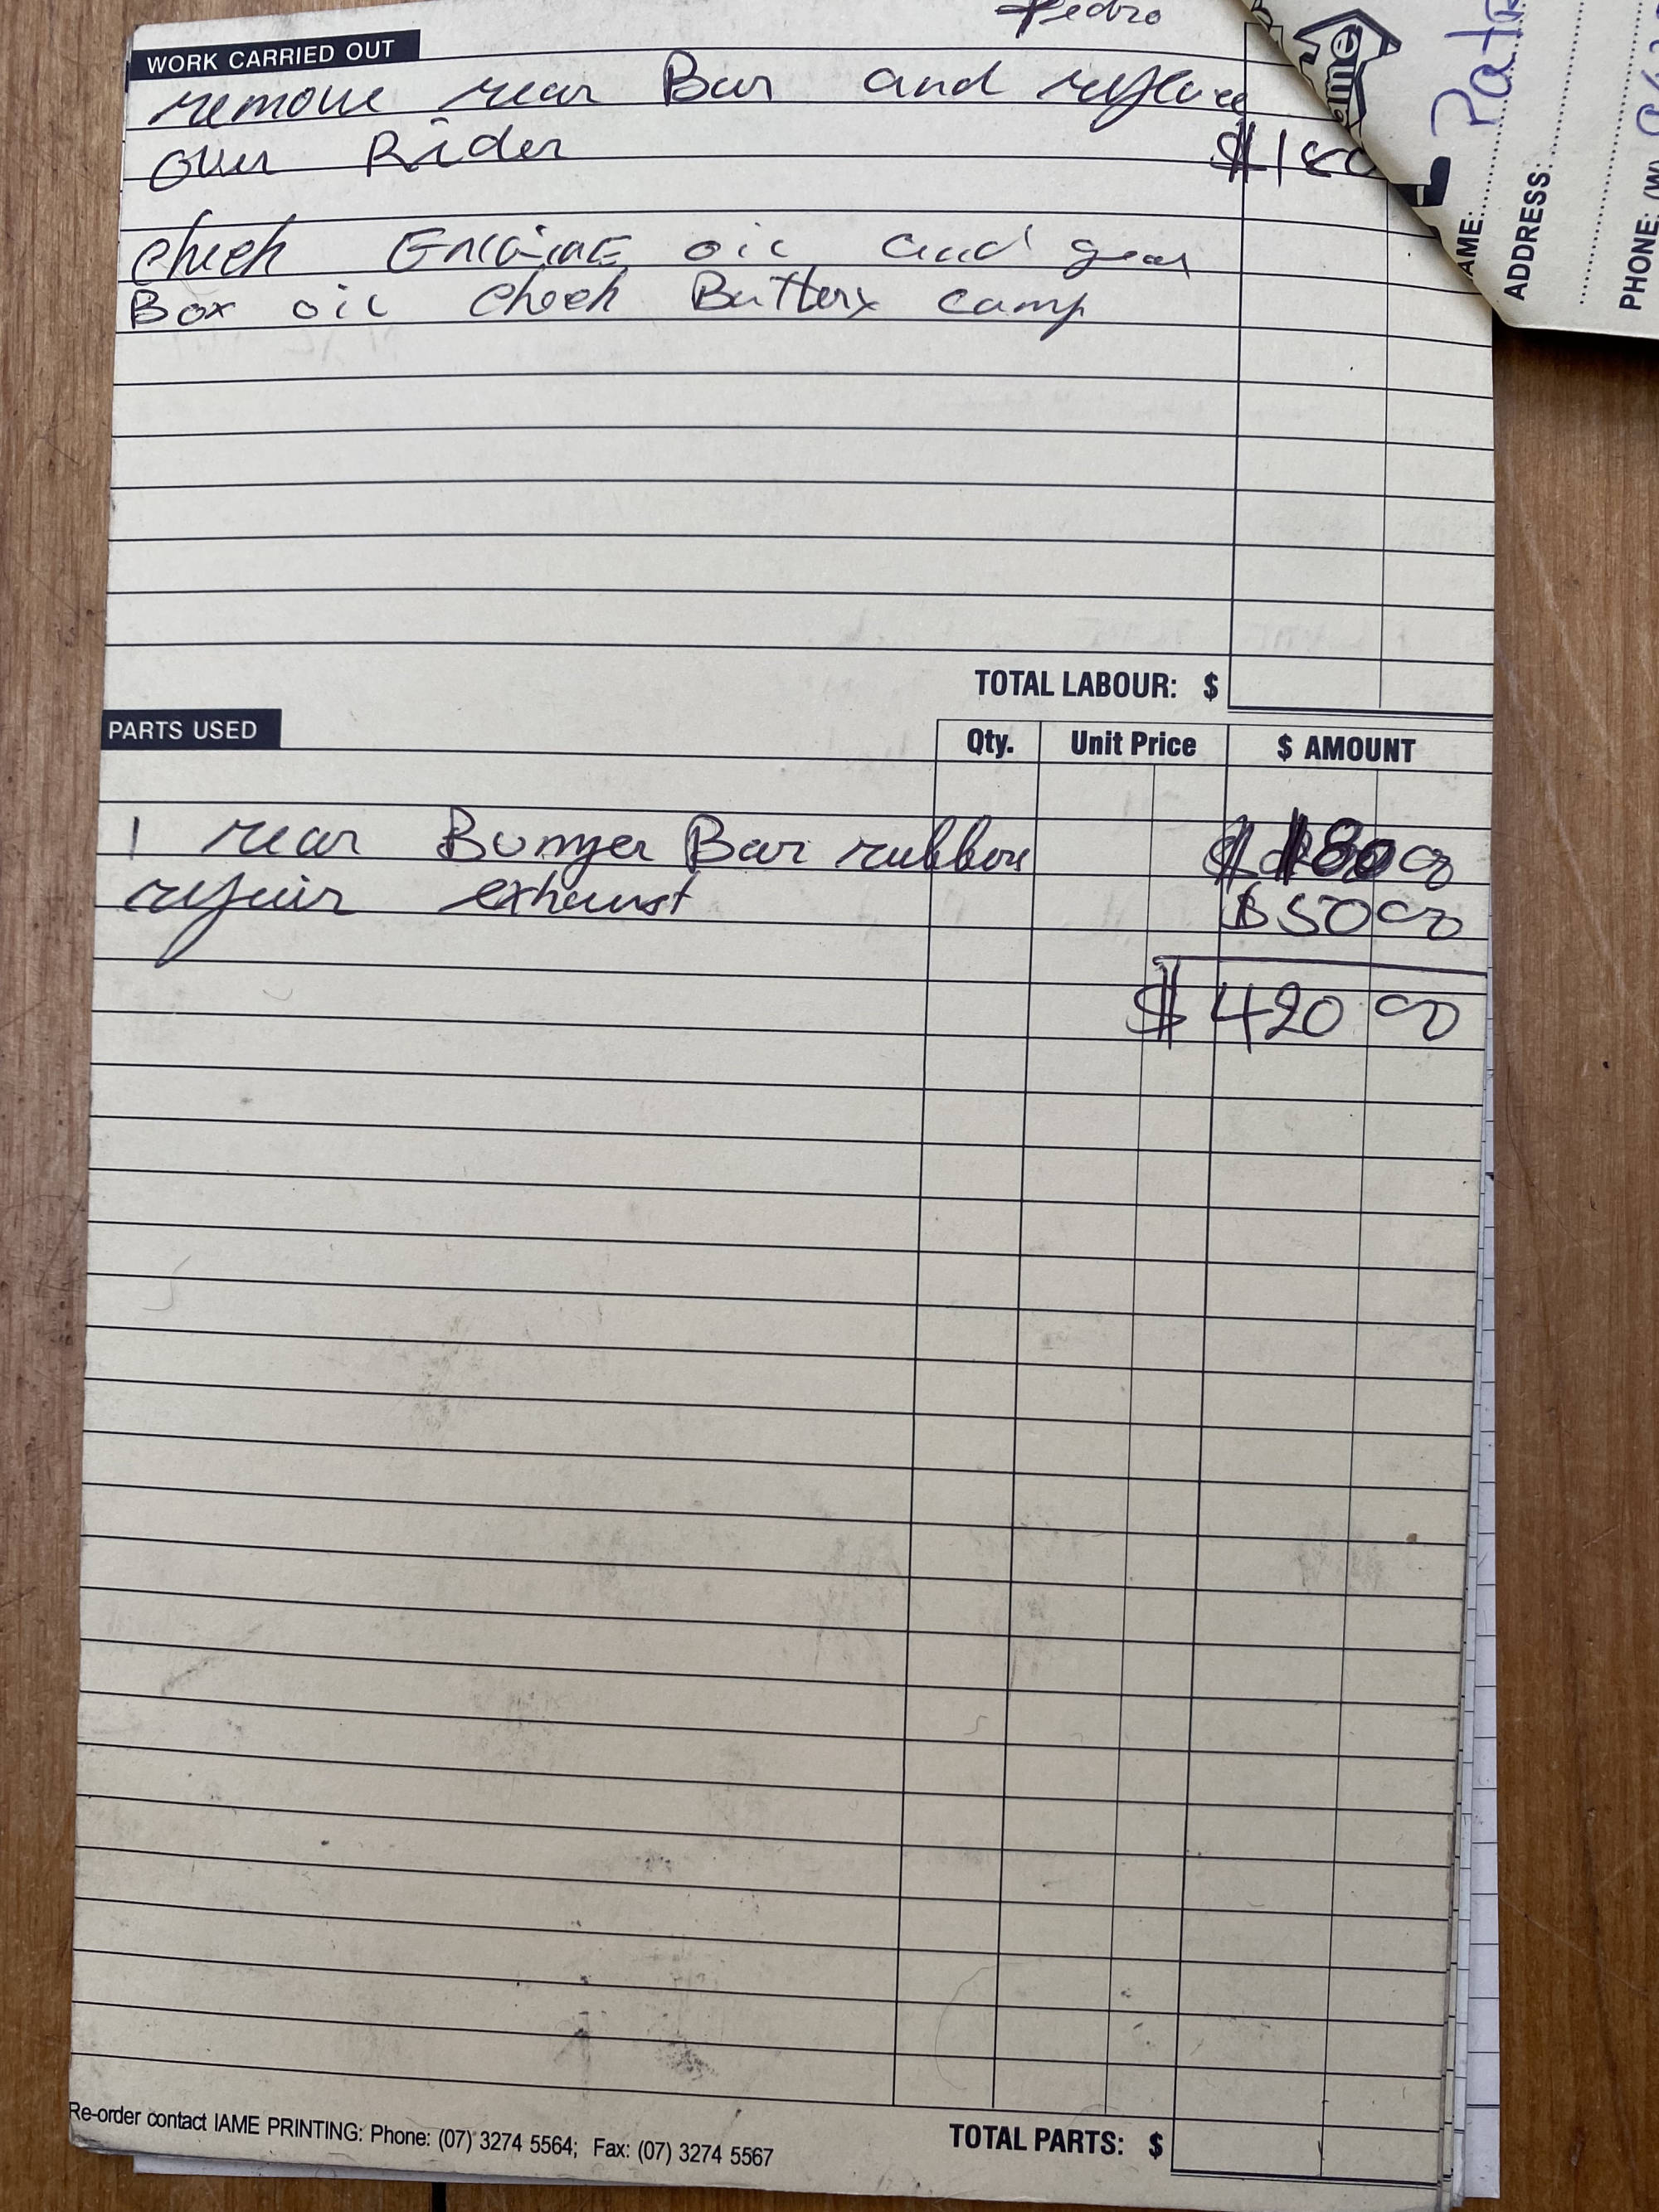 Pedro
WORK CARRIED OUT
remove rear Bar and replace
over Rider $180
check ENGINE oil and gear
Box oil check Battery camp
TOTAL LABOUR: $
PARTS USED Qty. Unit Price $ AMOUNT
1 rear Bumper Bar rubbers $ 180 00
repair exhaust $50 00
$ 420 00
Re-order contact IAME PRINTING: Phone: (07) 3274 5564; Fax: (07) 3274 5567
TOTAL PARTS: $
ame
AME:
ADDRESS:
PHONE: (W)